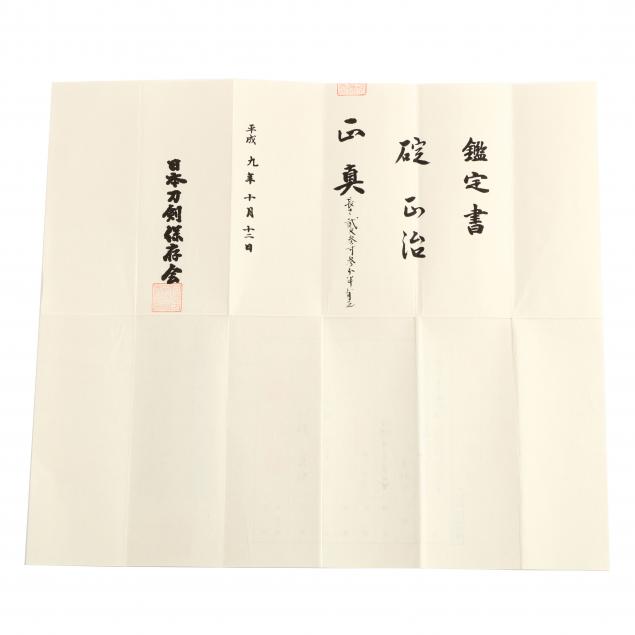 鑑定書
碇 正治
正真
長さ 弐尺参寸参分半有之
平成 九年 十月 十二日
日本刀剣保存会